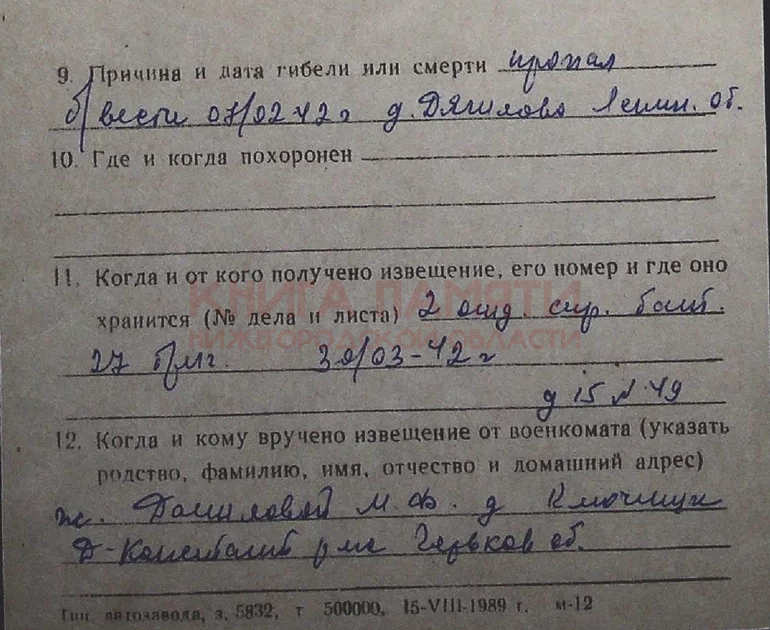 9. Причина и дата гибели или смерти пропал
б/вести 07/02 42 г д. Дягилово Ленин. об.
10. Где и когда похоронен
11. Когда и от кого получено извещение, его номер и где оно
КНИГА ПАМЯТИ
хранится (№ дела и листа) 2 отд. стр. бат.
НИЖЕГОРОДСКОЙ ОБЛАСТИ
27 30/03-42 г
д 15 л. 49
12. Когда и кому вручено извещение от военкомата (указать
родство, фамилию, имя, отчество и домашний адрес)
ж. Даниловой М. Ф. д Ключищи
Д-Констант р-на Горьков об.
Тип. автозавода, з. 5832, т 500000, 15-VIII-1989 г. м-12